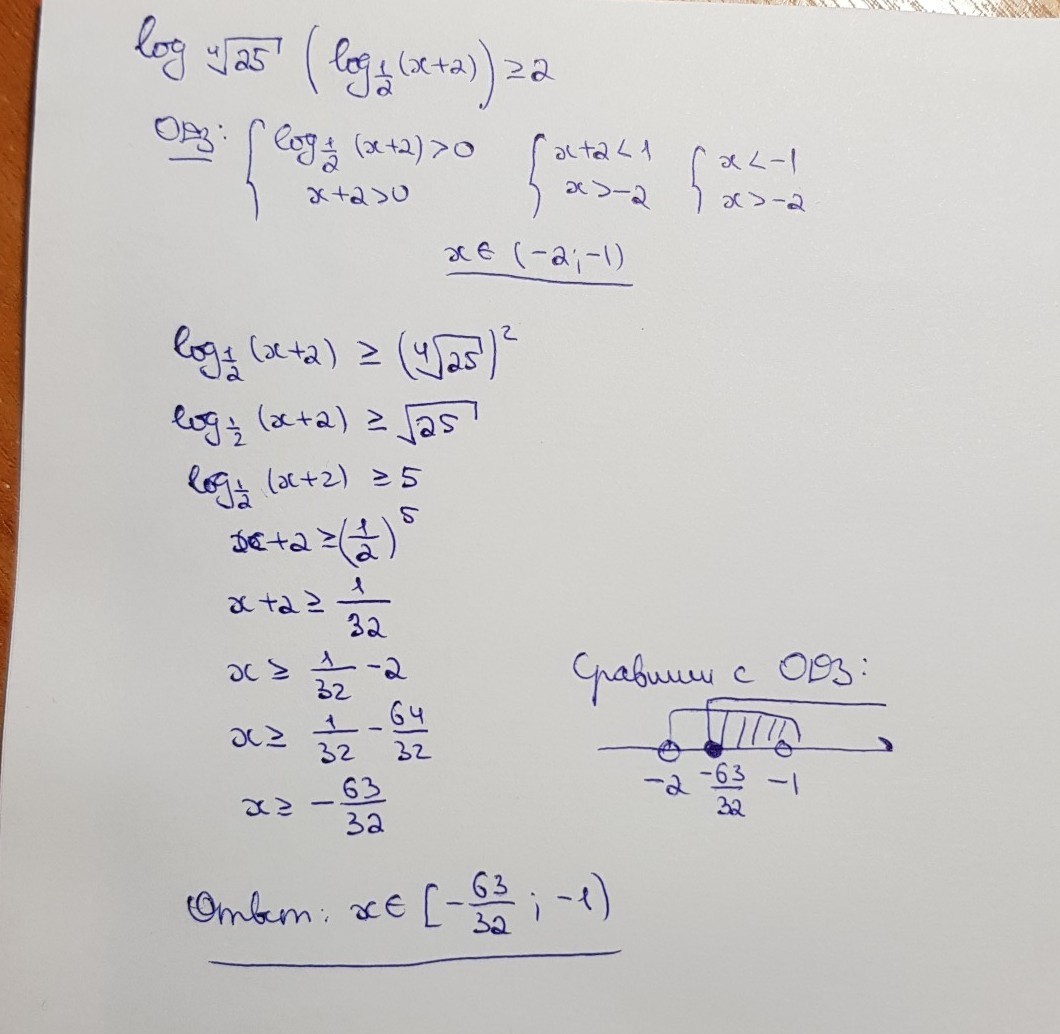 log ⁴√25 (log_{1/2}(x+2)) ≥ 2
ОДЗ: { log_{1/2}(x+2) > 0 { x+2 < 1 { x < -1
x+2 > 0 x > -2 x > -2
x ∈ (-2; -1)
log_{1/2}(x+2) ≥ (⁴√25)²
log_{1/2}(x+2) ≥ √25
log_{1/2}(x+2) ≥ 5
x+2 ≥ (1/2)⁵
x+2 ≥ 1/32
x ≥ 1/32 - 2
x ≥ 1/32 - 64/32
x ≥ -63/32
Сравним с ОДЗ:
-2 -63/32 -1
Ответ: x ∈ [-63/32; -1)